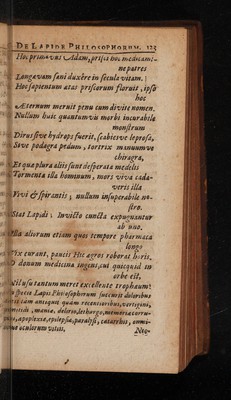 DE LAPIDE PHILOSOPHORUM. 123
Hoc primævus Adam, prisci hoc medicami-
ne patres
Longævam sani duxere in secula vitam.
Hoc sapientum atas priscorum floruit, ipso
hoc
Æternum meruit penu cum divite nomen.
Nullum huic quantumvis morbi incurabile
monstrum
Dirus sive hydrops fuerit, scabiesve leprosa,
Sive podagra pedum, tortrix manuumve
chiragra,
Et qua plura aliis sunt desperata medelis
Tormenta illa hominum, mors viva cada-
veris illa
Vivi & spirantis; nullum insuperabile no-
stro.
Stat Lapidi: Invicto cuncta expugnantur
ab uno.
Illa aliorum etiam quos tempore pharmaca
longo
Vix curant, paucis Hic agros roborat horis.
O donum medicina ingens, cui quicquid in
orbe est.
usu tantum meret excellente trophæum!
Lapis Philosophorum succinis doloribus
tam antiquis quam recentioribus, vertigini,
mania, delirio, lethargo,
apoplexia, epilepsia, paralysi, catarrhis, omni-
oculorum vitiis.
Neq-